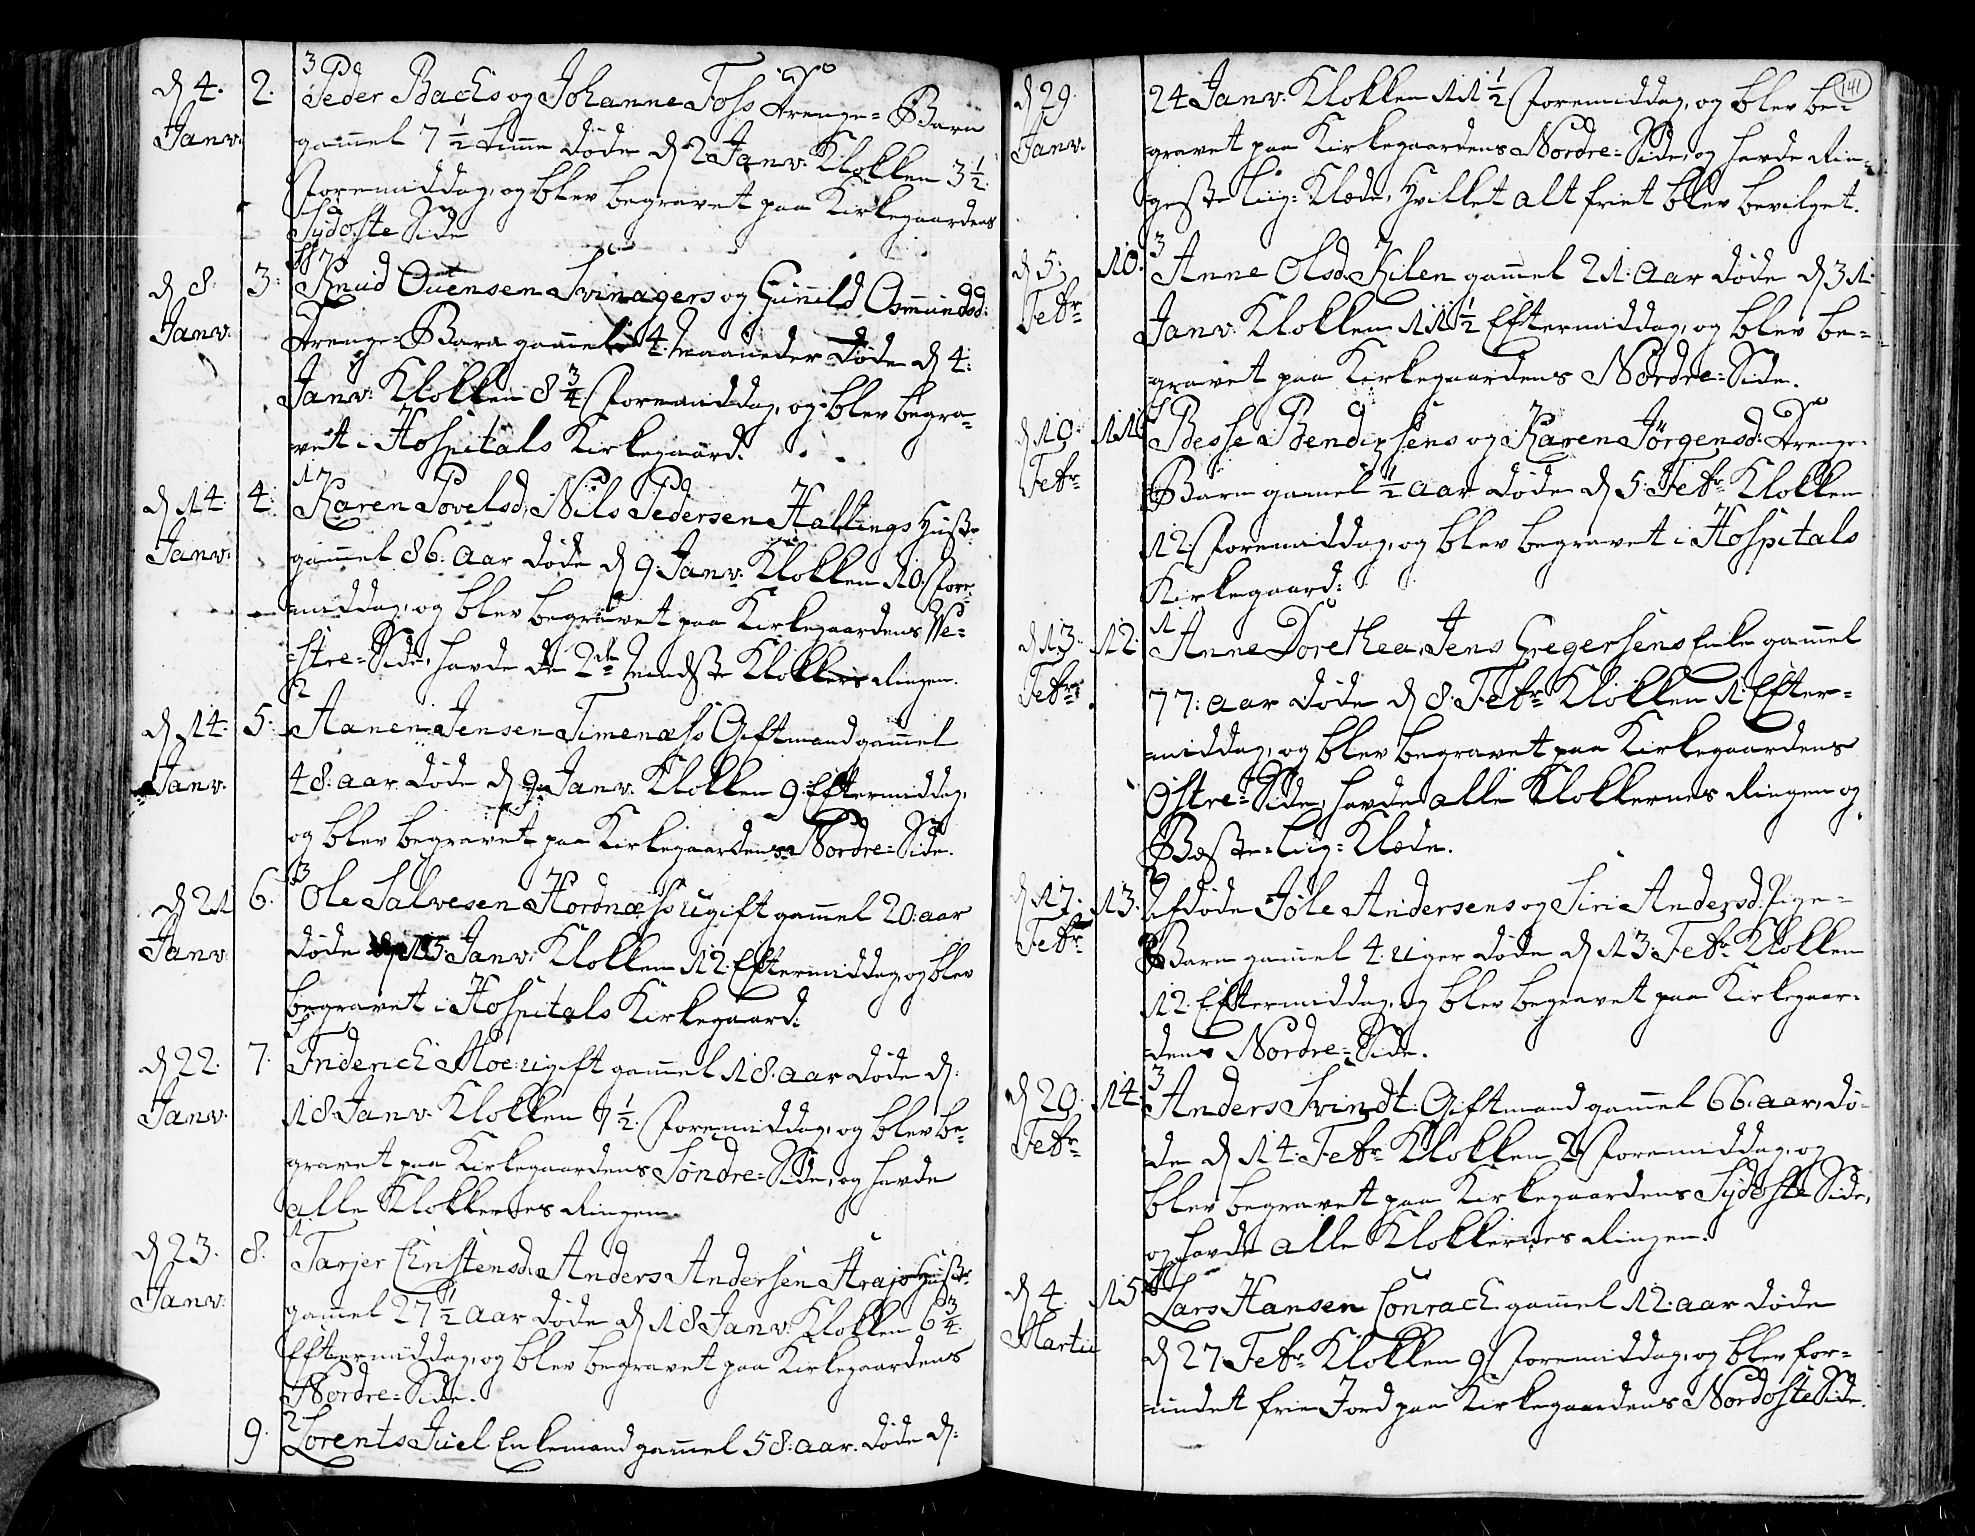 d 4. 2. 3 Peder Bachs og Johanne Foss Drenge=Barn
Janv: gammel 7 1/2 time døde d 2 Janv: Klokken 3 1/2
Formiddag, og blev begravet paa Kirkegaardens
Sydoste Side
d 8. 3. Knud Ouensen Svinagers og Gunnild Osmundsd:
Janv: Drenge=Barn gammel 4 Maaneder døde d 4:
Janv: Klokken 8 3/4 Formiddag, og blev begra-
vet i Hospitals Kirkegaard.
17
d 14. 4. Karen Povelsd, Nils Pedersen Hallings Hustr
Janv: gammel 86. aar døde d 9 Janv: Klokken 10. Fore-
middag, og blev begravet paa Kirkegaardens Ve-
=stre=Side, havde de 2de Mindste Klokkers Ringen.
2
d 14. 5. Aanen Jensen Timenæss Giftmand gammel
Janv. 48. aar døde d 9 Janv. Klokken 9 Eftermiddag,
og blev begravet paa Kirkegaardens Nordre=Side.
3
d 21 6. Ole Salvesen Hordnæss ugift gammel 20. aar
Janv: døde d 15 Janv: Klokken 12. Eftermiddag, og blev
begravet i Hospitals Kirkegaard:
d 22. 7. Friderich Moe ugift gammel 18. aar døde d.
Janv. 18 Janv. Klokken 7 1/2. Formiddag, og blev be-
gravet paa Kirkegaardens Søndre=Side, og havde
alle Klokkernes Ringen.
1
d 23. 8. Tarjer Christensd, Anders Andersen Hustr
Janv: gammel 27 1/2 aar døde d 18 Janv: Klokken 6 3/4.
Eftermiddag, og blev begravet paa Kirkegaardens
Nordre=Side.
2
9. Lorents Juel Enkemand gammel 58. aar. døde d:
141
d 29 24 Janv: Klokken 11 1/2 Formiddag, og blev be-
Janv. gravet paa Kirkegaardens Nordre=Side, og havde Rin-
geste Liig=Klæde, Hvilket alt friet blev bevilget.
3
d 5. 10. Anne Olsd. Kilen gammel 21. Aar døde d 31.
Febr Janv: Klokken 11 1/2 Eftermiddag, og blev be-
gravet paa Kirkegaardens Nordre=Side.
d 10. 11. Besse Bendixsens og Karen Jørgensd: Drenge=
Febr Barn gammel 1/2 aar døde d 5. Febr Klokken
12 Formiddag, og blev begravet i Hospitals
Kirkegaard:
1
d 13. 12. Anne Dorethea, Jens Gregersens Enke gammel
Febr 77. aar døde d 8. Febr Klokken 1. Efter=
middag, og blev begravet paa Kirkegaardens
Østre=Side, havde alle Klokkernes Ringen og
Bæste=Liig=Klæde.
2
d 17. 13. Afdøde Jøle Andersens og Siri Andersd: Pige=
Febr Barn gammel 4. uger døde d 13. Febr Klokken
12. Eftermiddag, og blev begravet paa Kirkegaar-
dens Nordre=Side.
3
d 20. 14. Anders Svindt. Giftmand gammel 66. aar, dø-
Febr de d 14. Febr Klokken 2 Formiddag, og
blev begravet paa Kirkegaardens Sydoste Side,
og havde alle Klokkernes Ringen.
d 4 15 Lars Hansen Conrach gammel 12. aar døde
Martii d 27 Febr Klokken 9 Formiddag, og blev for-
undet frie Jord paa Kirkegaardens Nordoste Side.